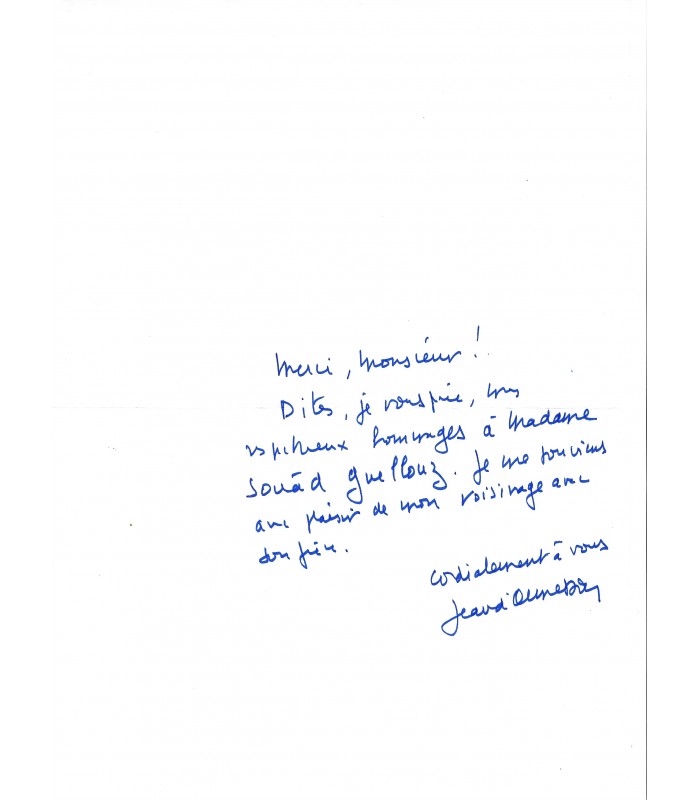 Merci, Monsieur !
Dites, je vous prie, mes
respectueux hommages à Madame
Souâd Guellouz. Je me souviens
avec plaisir de mon voisinage avec
son frère.
Cordialement à vous
Jean d'Ormesson